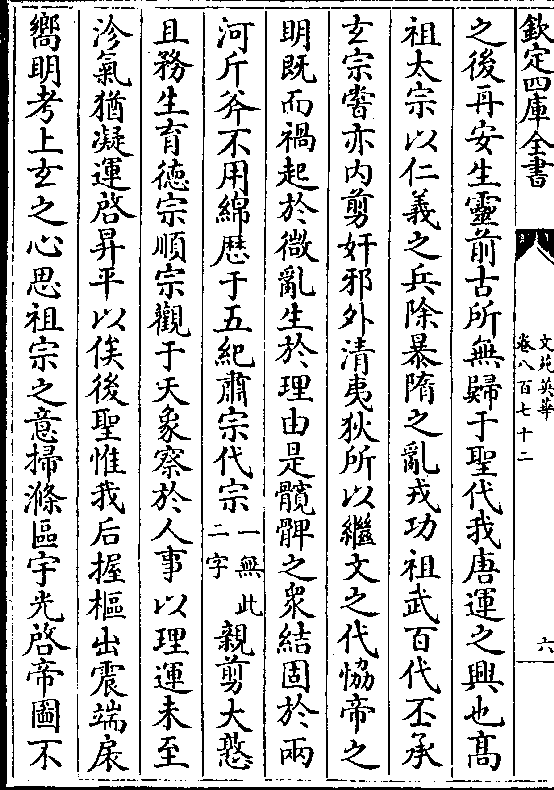 欽定四庫全書
文苑英華
卷八百七十二
六
之後再安生靈前古所無歸于聖代我唐運之興也髙
祖太宗以仁義之兵除暴隋之亂戎功祖武百代丕承
玄宗嘗亦内剪奸邪外清夷狄所以繼文之代恊帝之
明既而禍起於微亂生於理由是髖髀之衆結固於兩
河斤斧不用綿歴于五紀肅宗代宗一無此二字親剪大憝
且務生育徳宗順宗觀于天象察於人事以理運未至
沴氣猶凝運啓昇平以俟後聖惟我后握樞出震端扆
嚮明考上玄之心思祖宗之意掃滌區宇光啓帝圖不